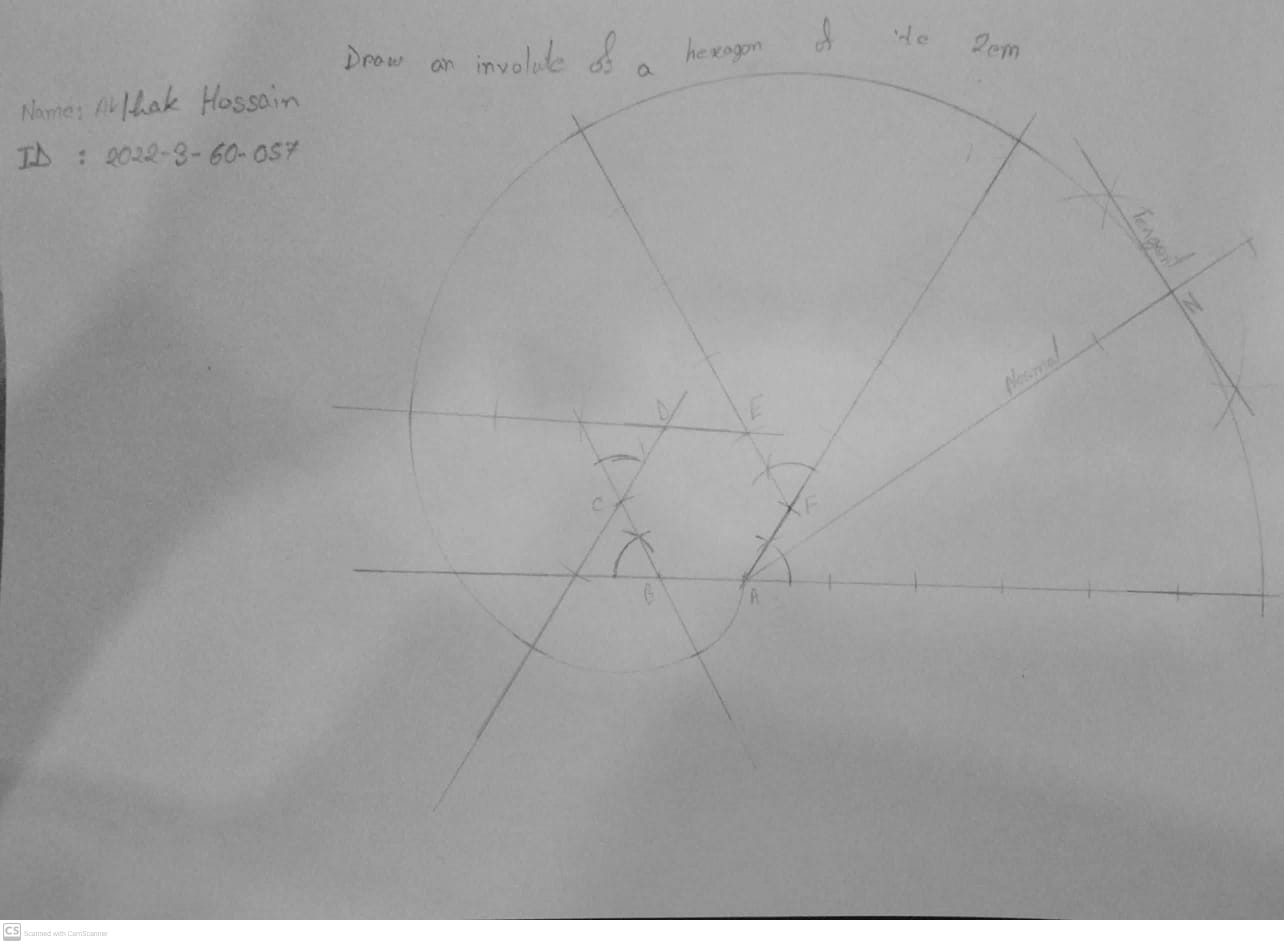 Draw an involute of a hexagon of 2cm
Name: Hossain
ID : 2022-3-60-057
Tangent
N
Normal
D
E
C
F
B
A
CS Scanned with CamScanner